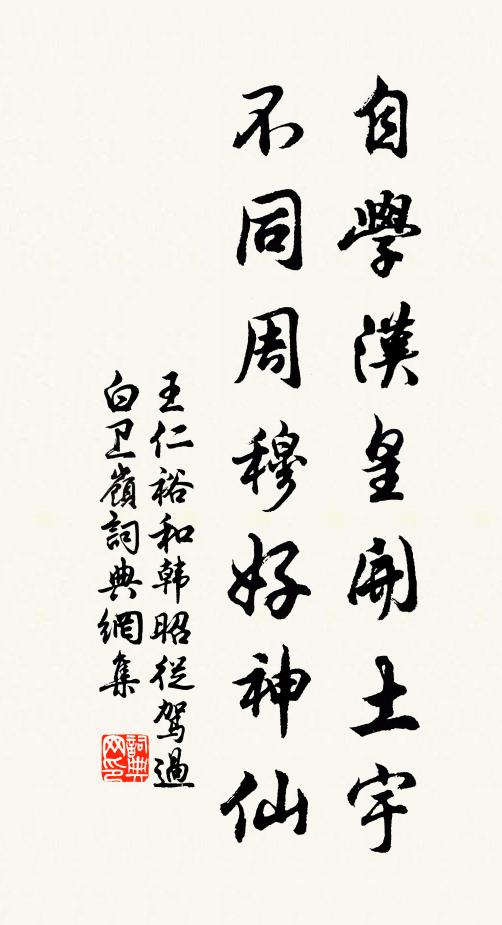 自學漢皇開土宇
不同周穆好神仙
王仁裕和韩昭従駕過
白卫嶺詞典網集
詞典
网印